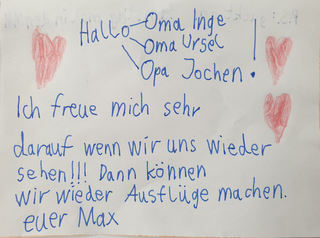 Hallo Oma Inge
Oma Ursel
Opa Jochen!
Ich freue mich sehr
darauf wenn wir uns wieder
sehen!!! Dann können
wir wieder Ausflüge machen.
euer Max